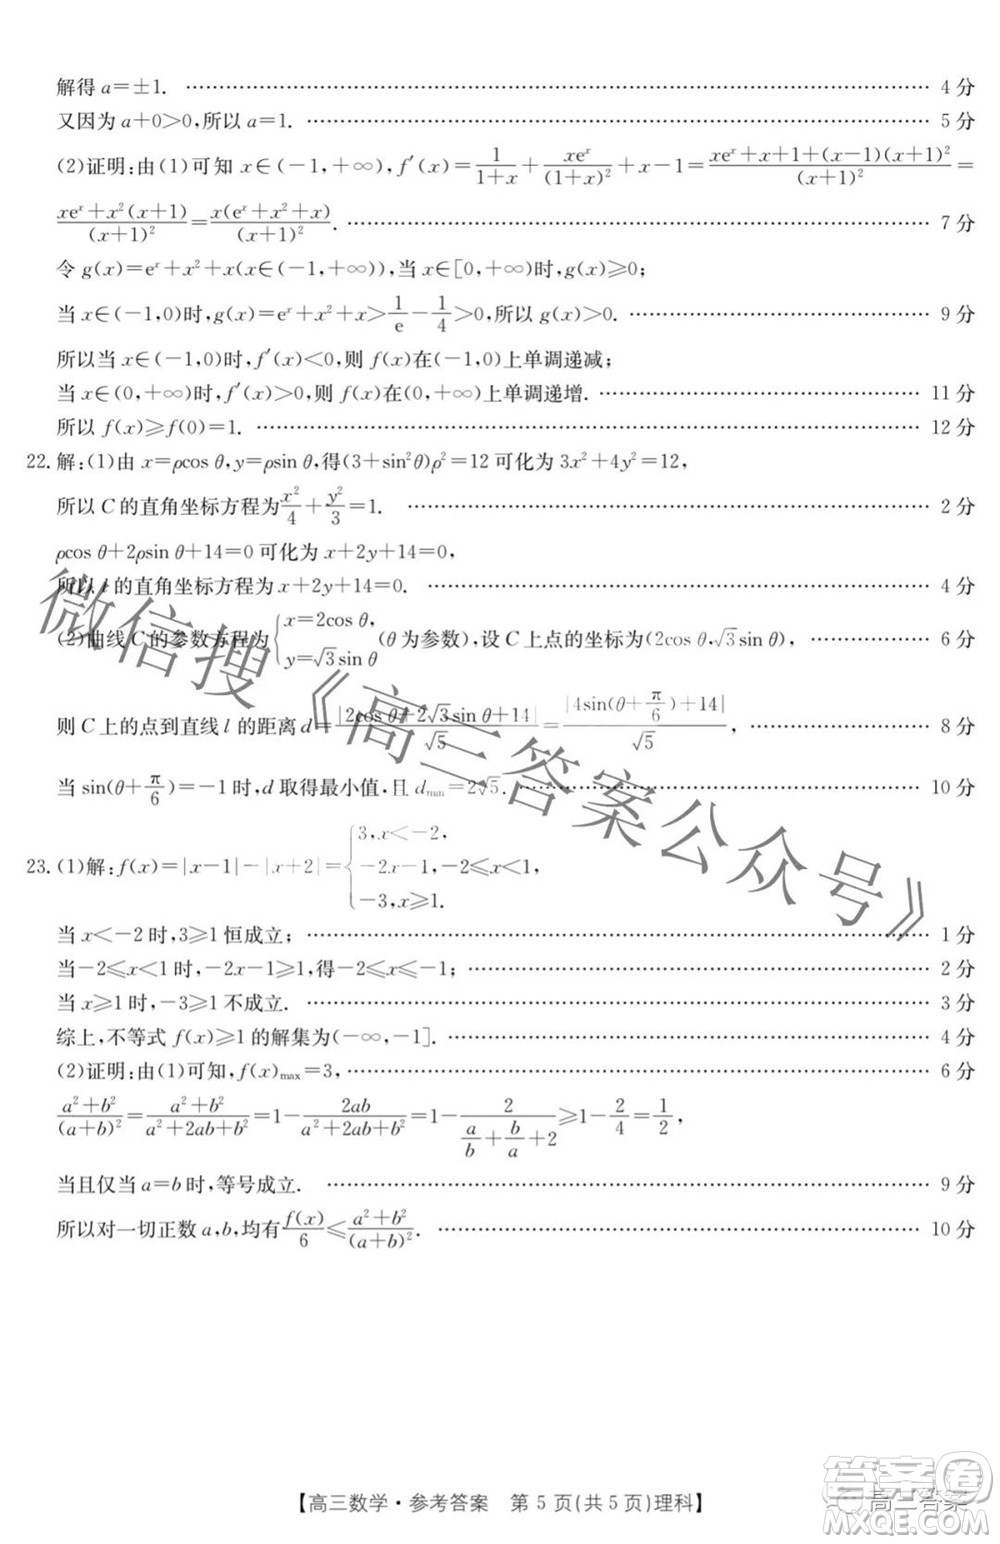 解得 a=±1. …… 4 分
又因为 a+0>0,所以 a=1. …… 5 分
(2)证明:由(1)可知 x∈(-1,+∞),f′(x)=1/(1+x)+xeˣ/(1+x)²+x-1=(xeˣ+x+1+(x-1)(x+1)²)/(x+1)²=
(xeˣ+x²(x+1))/(x+1)²=x(eˣ+x²+x)/(x+1)². …… 7 分
令 g(x)=eˣ+x²+x(x∈(-1,+∞)),当 x∈[0,+∞)时,g(x)≥0;
当 x∈(-1,0)时,g(x)=eˣ+x²+x>1/e-1/4>0,所以 g(x)>0. …… 9 分
所以当 x∈(-1,0)时,f′(x)<0,则 f(x)在(-1,0)上单调递减;
当 x∈(0,+∞)时,f′(x)>0,则 f(x)在(0,+∞)上单调递增. …… 11 分
所以 f(x)≥f(0)=1. …… 12 分
22.解:(1)由 x=ρcos θ,y=ρsin θ,得(3+sin²θ)ρ²=12 可化为 3x²+4y²=12,
所以 C 的直角坐标方程为x²/4+y²/3=1. …… 2 分
ρcos θ+2ρsin θ+14=0 可化为 x+2y+14=0,
所以 l 的直角坐标方程为 x+2y+14=0. …… 4 分
(2)曲线 C 的参数方程为{x=2cos θ y=√3sin θ (θ 为参数),设 C 上点的坐标为(2cos θ,√3sin θ), …… 6 分
则 C 上的点到直线 l 的距离 d=|2cos θ+2√3sin θ+14|/√5=|4sin(θ+π/6)+14|/√5, …… 8 分
当 sin(θ+π/6)=-1 时,d 取得最小值,且 dmin=2√5. …… 10 分
23.(1)解:f(x)=|x-1|-|x+2|={3,x<-2, -2x-1,-2≤x<1, -3,x≥1.
当 x<-2 时,3≥1 恒成立; …… 1 分
当-2≤x<1 时,-2x-1≥1,得-2≤x≤-1; …… 2 分
当 x≥1 时,-3≥1 不成立. …… 3 分
综上,不等式 f(x)≥1 的解集为(-∞,-1]. …… 4 分
(2)证明:由(1)可知,f(x)max=3, …… 6 分
(a²+b²)/(a+b)²=(a²+b²)/(a²+2ab+b²)=1-2ab/(a²+2ab+b²)=1-2/(a/b+b/a+2)≥1-2/4=1/2,
当且仅当 a=b 时,等号成立. …… 9 分
所以对一切正数 a,b,均有f(x)/6≤(a²+b²)/(a+b)². …… 10 分
微信搜《高三答案公众号》
【高三数学·参考答案 第 5 页(共 5 页)理科】
高三答案
答案圈
MXQE.COM